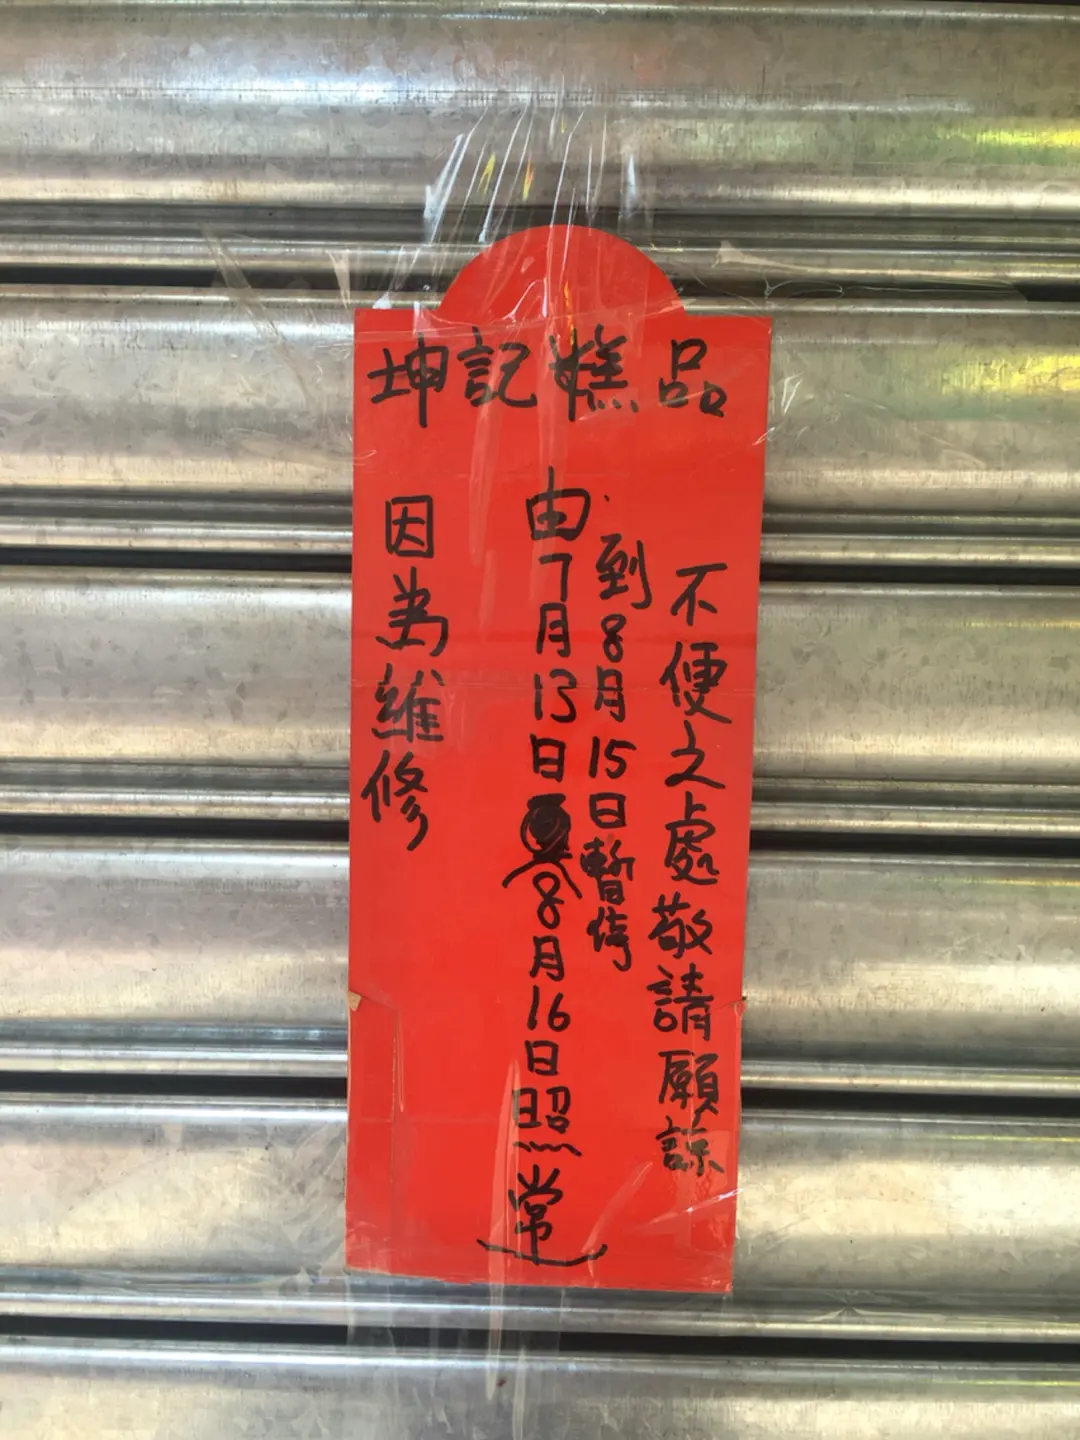 坤記糕品
因為維修
由7月13日
到8月15日暫停
(8月16日照常)
不便之處敬請願諒